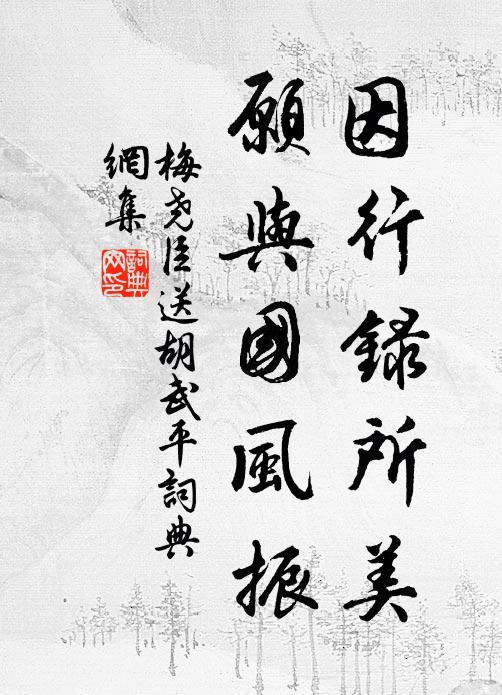 因行録所美
願與國風振
梅尧臣送胡武平詞典
網集
詞典
网印